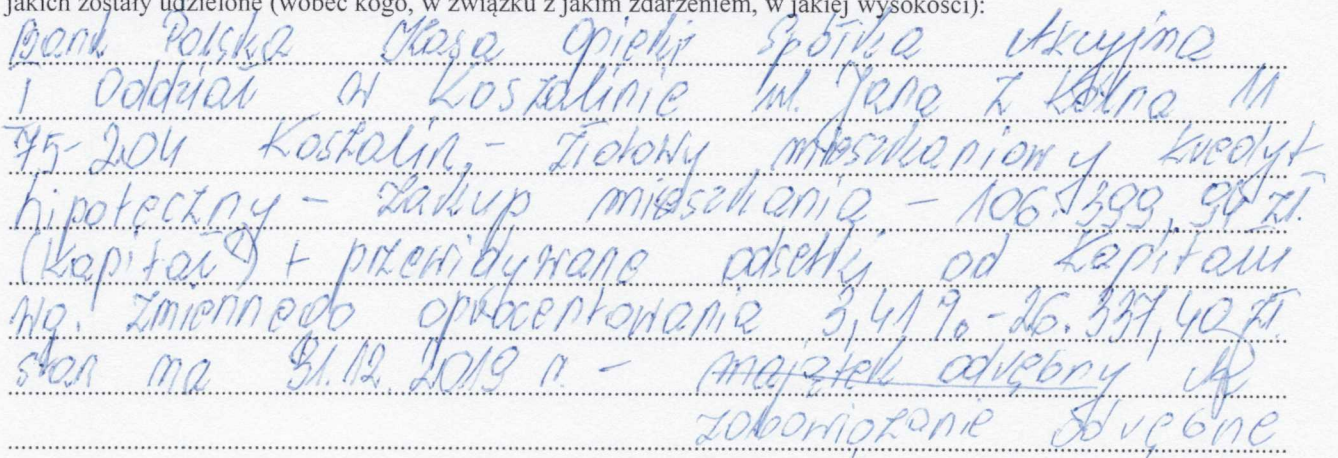 jakich zostały udzielone (wobec kogo, w związku z jakim zdarzeniem, w jakiej wysokości):
Bank Polska Kasa Opieki Spółka Akcyjna
I Oddział w Koszalinie ul. Jana z Kolna 11
75-204 Koszalin, - złotowy mieszkaniowy kredyt
hipoteczny - zakup mieszkania - 106.399,94 zł.
(kapitał) + przewidywane odsetki od kapitału
wg. zmiennego oprocentowania 3,41% - 26.337,40 zł.
stan na 31.12.2019 r. - majątek odrębny
zobowiązanie odrębne